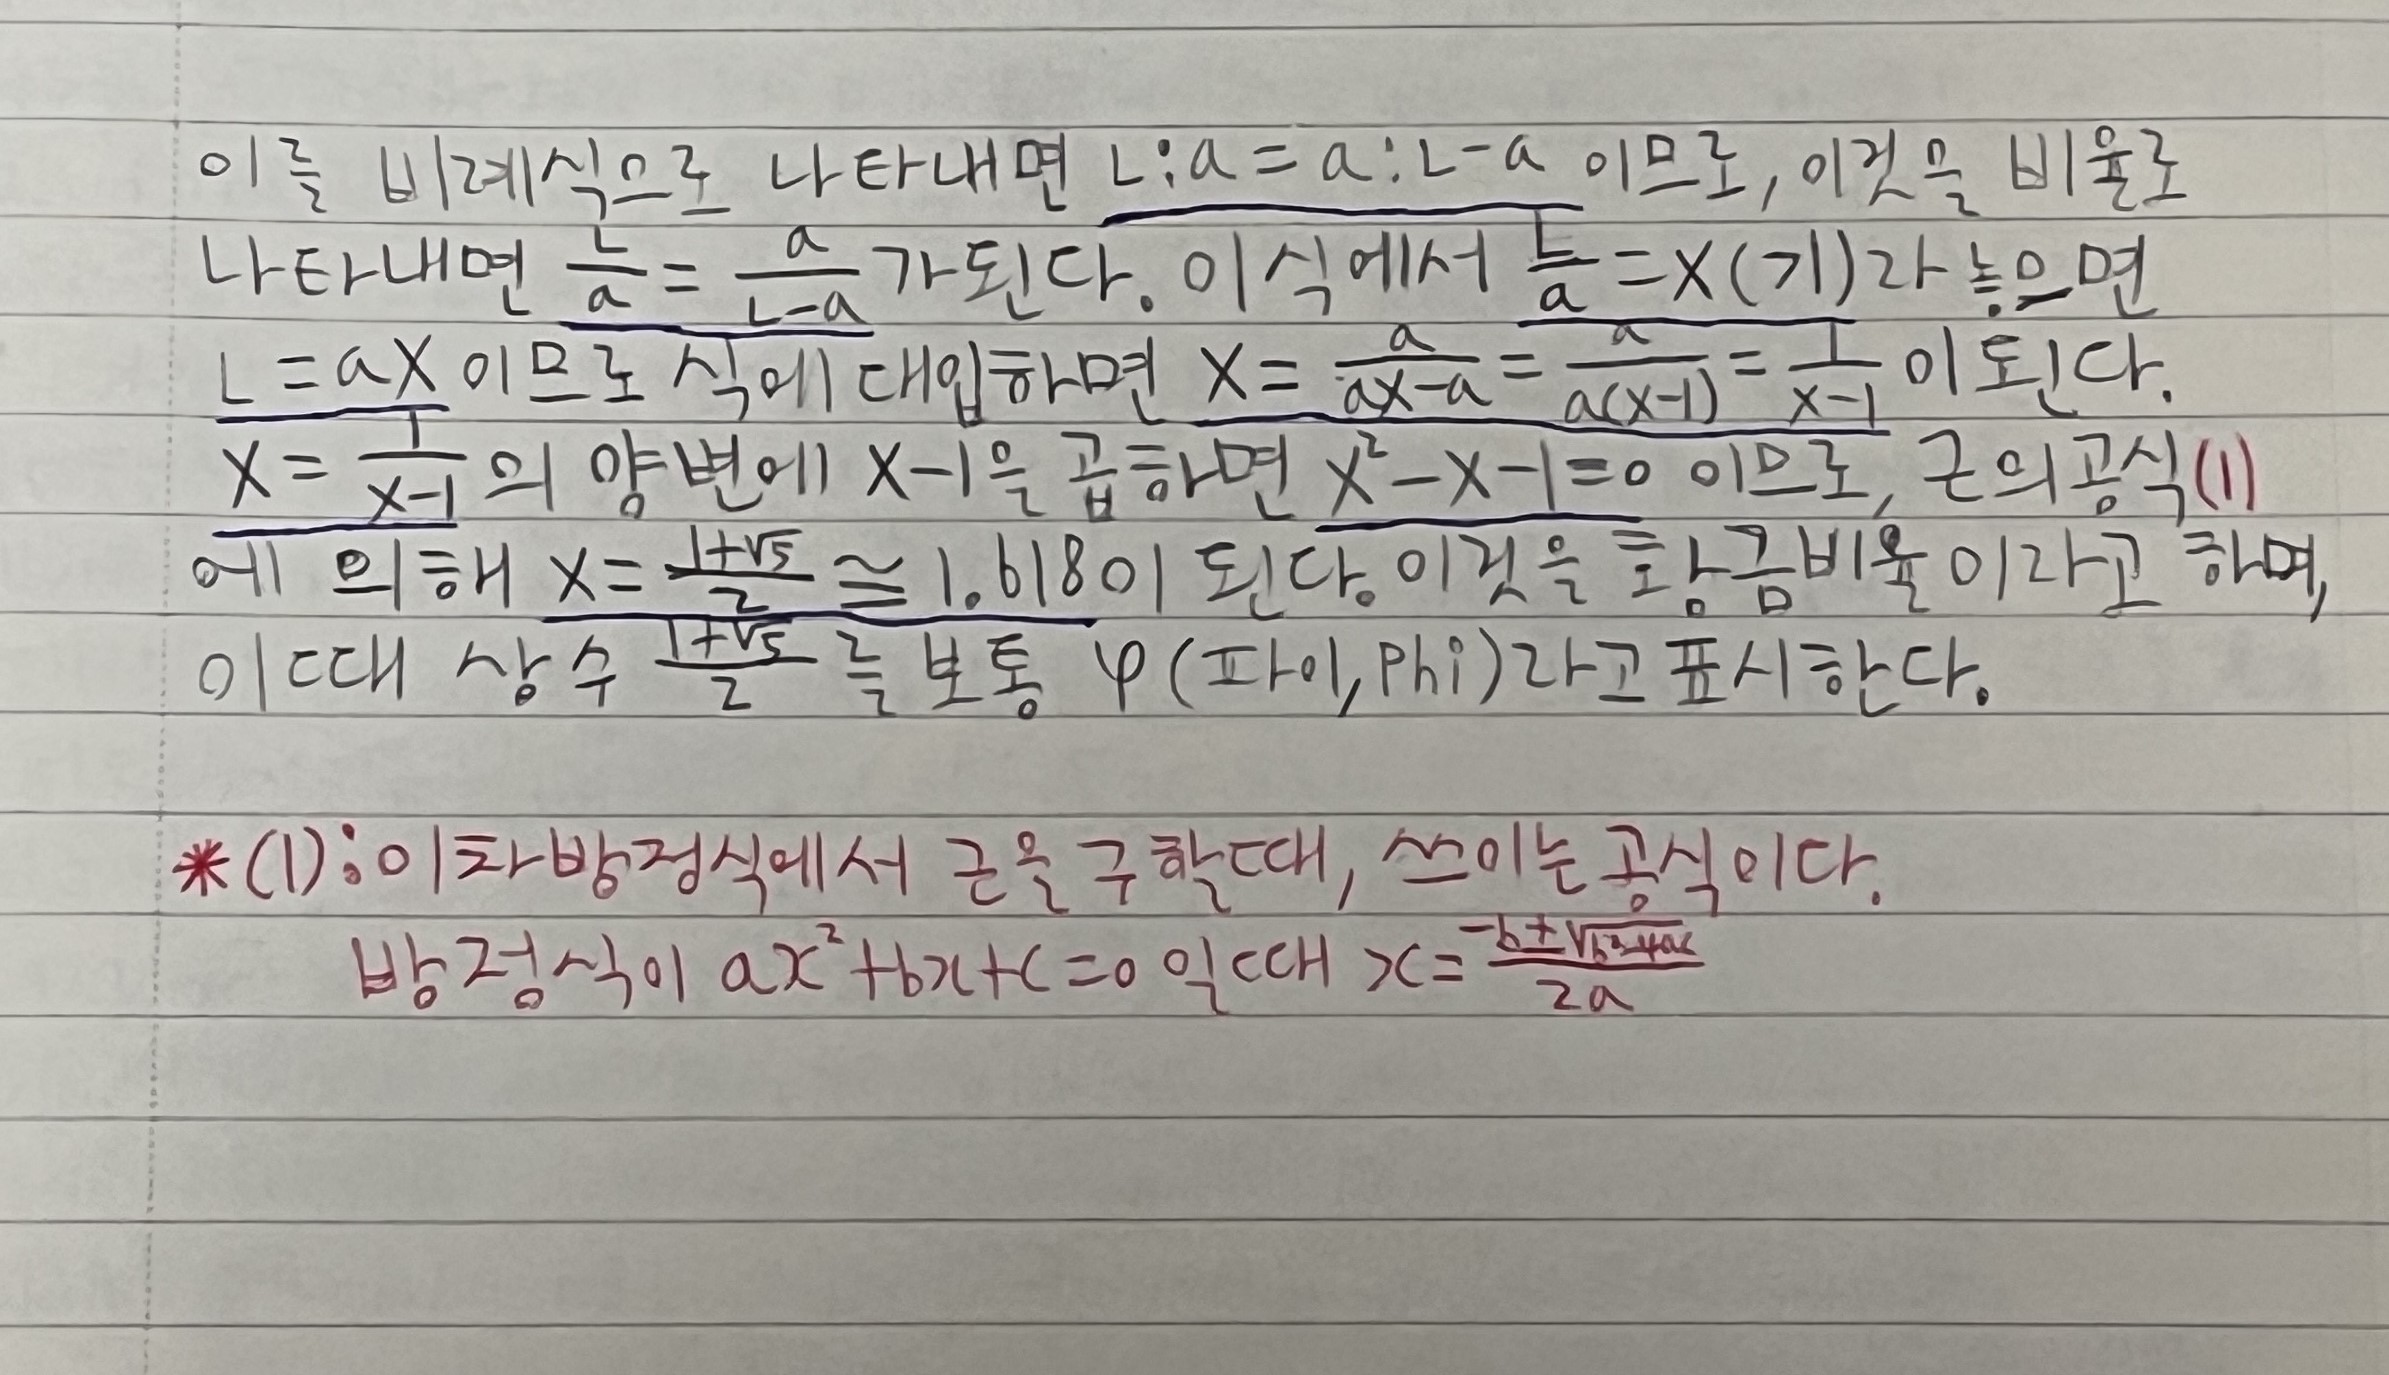 이를 비례식으로 나타내면 L:a=a:L-a 이므로, 이것을 비율로
나타내면 L/a = a/(L-a) 가된다. 이식에서 L/a = X(기)라 놓으면
L=aX 이므로 식에 대입하면 X = a/(aX-a) = a/(a(X-1)) = 1/(X-1) 이 된다.
X = 1/(X-1) 의 양변에 X-1을 곱하면 X²-X-1=0 이므로, 근의공식(1)
에 의해 X = (1+√5)/2 ≅ 1.618이 된다. 이것을 황금비율이라고 하며,
이때 상수 (1+√5)/2 를 보통 φ(파이, Phi)라고 표시한다.
*(1):이차방정식에서 근을 구할때, 쓰이는 공식이다.
방정식이 ax²+bx+c=0 일때 x = (-b±√(b²-4ac))/2a